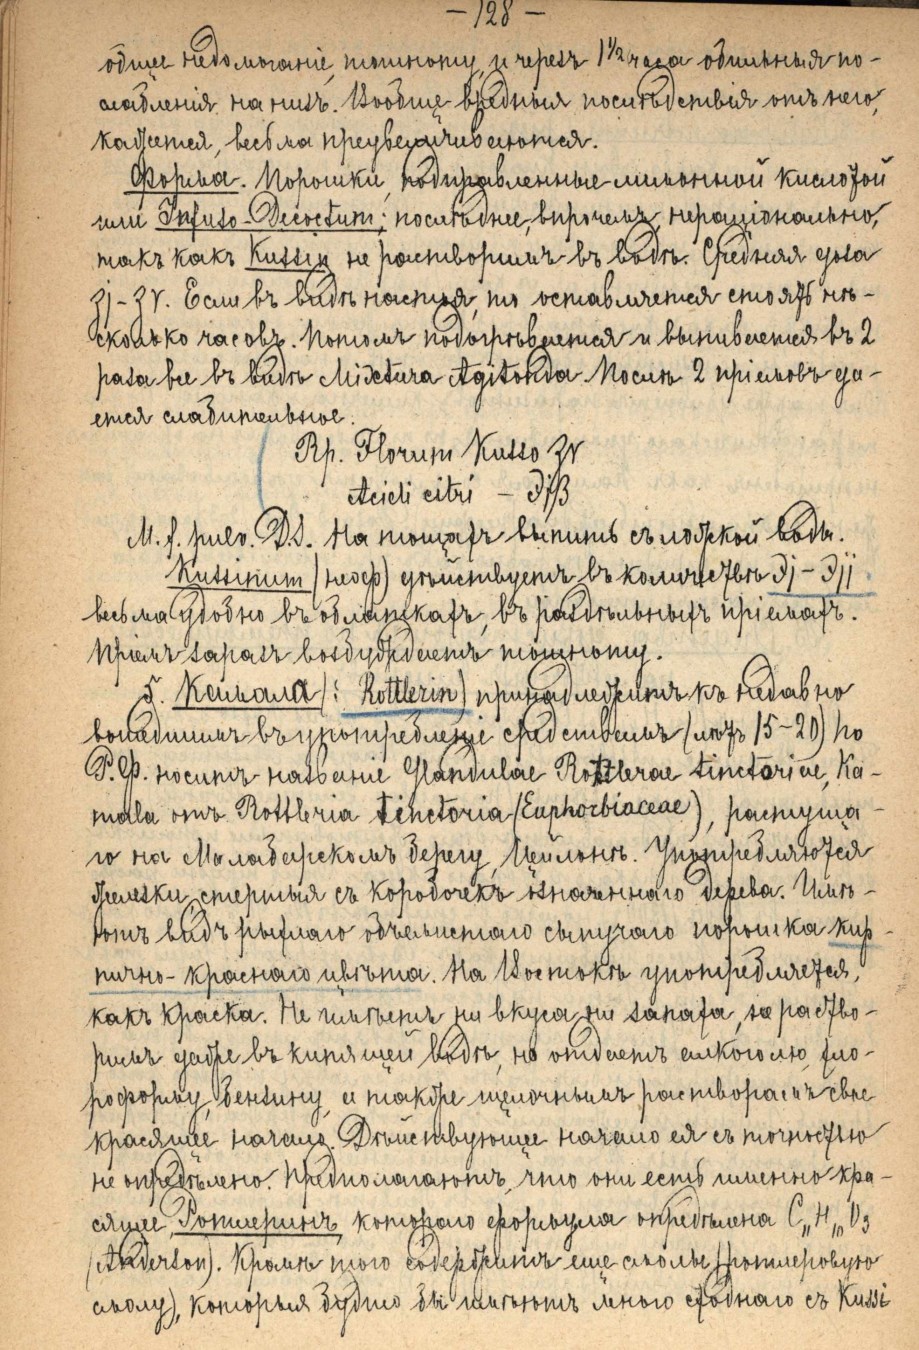 — 128 —
общее недомоганіе, тошноту, и черезъ 1 1/2 часа обильныя по-
слабленія на низъ. Вообще вредныя послѣдствія отъ него,
кажется, весьма преувеличиваются.
Форма. Порошки, подправленные лимонной кислотой
или Infuso-Decoctum; послѣднее, впрочемъ, нераціонально,
такъ какъ Kussin не растворимъ въ водѣ. Средняя доза
ʒj – ʒv. Если въ видѣ настоя, то оставляется стоять нѣ-
сколько часовъ. Потомъ подогрѣвается и выпивается въ 2
раза все въ видѣ Mixtura Agitanda. Послѣ 2 пріемовъ да-
ется слабительное.
Rp. Florum Kusso ʒv
Acidi citri – ℈jβ
M. f. pulv. D.S. На тощахъ выпить съ ложкой воды.
Kussinum дѣйствуетъ въ количествѣ ℈j – ℈jj
весьма удобно въ облаткахъ, въ раздѣльныхъ пріемахъ.
Пріемъ заразъ возбуждаетъ тошноту.
5. Камала (: Rottlerin) принадлежитъ къ недавно
вошедшимъ въ употребленіе средствамъ (лѣтъ 15–20) По
Р.Ф. носитъ названіе Glandulae Rottlerae tinctoriae, Ka-
mala отъ Rottleria tinctoria (Euphorbiaceae), растуща-
го на Малабарскомъ берегу, Цейлонѣ. Употребляются
железки, стертыя съ коробочекъ означеннаго дерева. Имѣ-
ютъ видъ рыхлаго объемистаго сыпучаго порошка кир-
пично-краснаго цвѣта. На Востокѣ употребляется,
какъ краска. Не имѣетъ ни вкуса ни запаха, не раство-
римъ даже въ кипящей водѣ, но отдаетъ алкоголю, хло-
роформу, бензину, и также щелочнымъ растворамъ свое
красящее начало. Дѣйствующее начало ея съ точностью
не опредѣлено. Предполагаютъ, что они есть именно кра-
сящее, Ротлеринъ, котораго формула опредѣлена C„H„O₃
(Anderson). Кромѣ того содержитъ еще смолы (ротлеровую
смолу), которыя будто бы имѣютъ много сходнаго съ Kussi